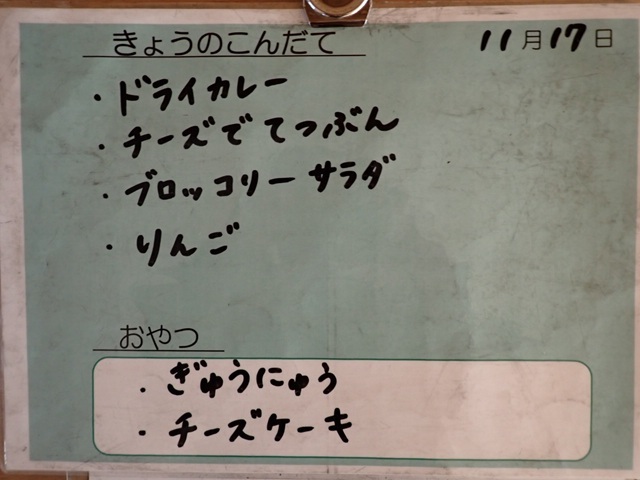 きょうのこんだて 11月17日
・ドライカレー
・チーズでてつぶん
・ブロッコリーサラダ
・りんご
おやつ
・ぎゅうにゅう
・チーズケーキ